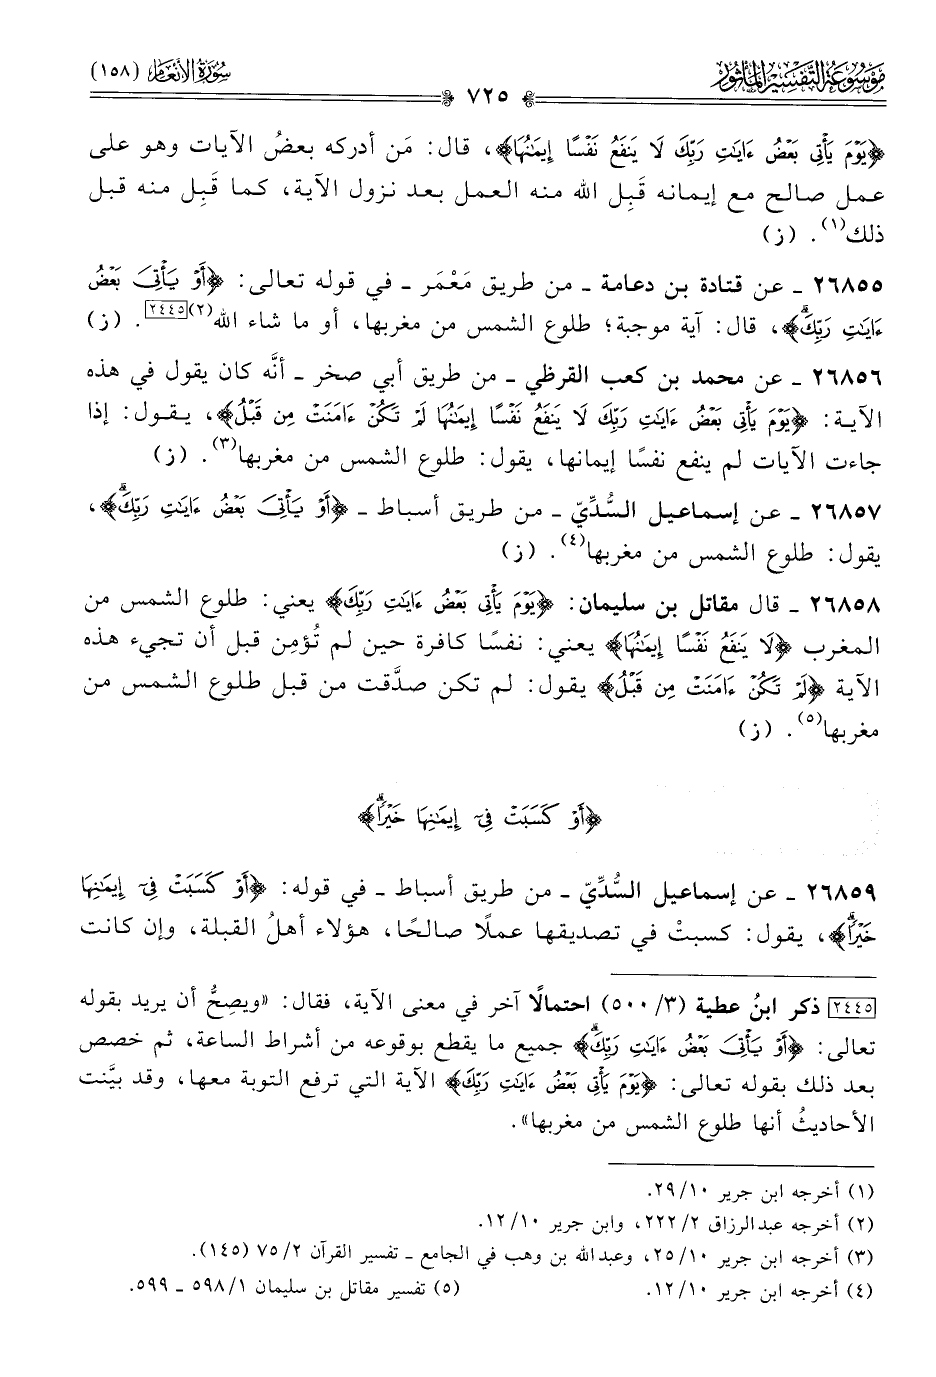 موسوعة التفسير المأثور
سورة الأنعام (١٥٨)
٧٢٥
﴿يَوْمَ يَأْتِى بَعْضُ ءَايَٰتِ رَبِّكَ لَا يَنفَعُ نَفْسًا إِيمَٰنُهَا﴾، قال: مَن أدركه بعضُ الآيات وهو على
عمل صالح مع إيمانه قَبِل الله منه العمل بعد نزول الآية، كما قَبِل منه قبل
ذلك(١). (ز)
٢٦٨٥٥ ـ عن قتادة بن دعامة ـ من طريق مَعْمَر ـ في قوله تعالى: ﴿أَوْ يَأْتِىَ بَعْضُ
ءَايَٰتِ رَبِّكَۗ﴾، قال: آية موجبة؛ طلوع الشمس من مغربها، أو ما شاء الله(٢)[٢٤٤٥]. (ز)
٢٦٨٥٦ ـ عن محمد بن كعب القرظي ـ من طريق أبي صخر ـ أنَّه كان يقول في هذه
الآية: ﴿يَوْمَ يَأْتِى بَعْضُ ءَايَٰتِ رَبِّكَ لَا يَنفَعُ نَفْسًا إِيمَٰنُهَا لَمْ تَكُنْ ءَامَنَتْ مِن قَبْلُ﴾، يقول: إذا
جاءت الآيات لم ينفع نفسًا إيمانها، يقول: طلوع الشمس من مغربها(٣). (ز)
٢٦٨٥٧ ـ عن إسماعيل السُّدِّيّ ـ من طريق أسباط ـ ﴿أَوْ يَأْتِىَ بَعْضُ ءَايَٰتِ رَبِّكَۗ﴾،
يقول: طلوع الشمس من مغربها(٤). (ز)
٢٦٨٥٨ ـ قال مقاتل بن سليمان: ﴿يَوْمَ يَأْتِى بَعْضُ ءَايَٰتِ رَبِّكَ﴾ يعني: طلوع الشمس من
المغرب ﴿لَا يَنفَعُ نَفْسًا إِيمَٰنُهَا﴾ يعني: نفسًا كافرة حين لم تُؤمِن قبل أن تجيء هذه
الآية ﴿لَمْ تَكُنْ ءَامَنَتْ مِن قَبْلُ﴾ يقول: لم تكن صدَّقت من قبل طلوع الشمس من
مغربها(٥). (ز)
﴿أَوْ كَسَبَتْ فِىٓ إِيمَٰنِهَا خَيْرًاۗ﴾
٢٦٨٥٩ ـ عن إسماعيل السُّدِّيّ ـ من طريق أسباط ـ في قوله: ﴿أَوْ كَسَبَتْ فِىٓ إِيمَٰنِهَا
خَيْرًاۗ﴾، يقول: كسبتْ في تصديقها عملًا صالحًا، هؤلاء أهلُ القبلة، وإن كانت
[٢٤٤٥] ذكر ابنُ عطية (٣/ ٥٠٠) احتمالًا آخر في معنى الآية، فقال: «ويصِحُّ أن يريد بقوله
تعالى: ﴿أَوْ يَأْتِىَ بَعْضُ ءَايَٰتِ رَبِّكَۗ﴾ جميع ما يقطع بوقوعه من أشراط الساعة، ثم خصص
بعد ذلك بقوله تعالى: ﴿يَوْمَ يَأْتِى بَعْضُ ءَايَٰتِ رَبِّكَ﴾ الآية التي ترفع التوبة معها، وقد بيَّنت
الأحاديثُ أنها طلوع الشمس من مغربها».
(١) أخرجه ابن جرير ١٠/ ٢٩.
(٢) أخرجه عبدالرزاق ٢/ ٢٢٢، وابن جرير ١٠/ ١٢.
(٣) أخرجه ابن جرير ١٠/ ٢٥، وعبدالله بن وهب في الجامع ـ تفسير القرآن ٢/ ٧٥ (١٤٥).
(٤) أخرجه ابن جرير ١٠/ ١٢. (٥) تفسير مقاتل بن سليمان ١/ ٥٩٨ ـ ٥٩٩.